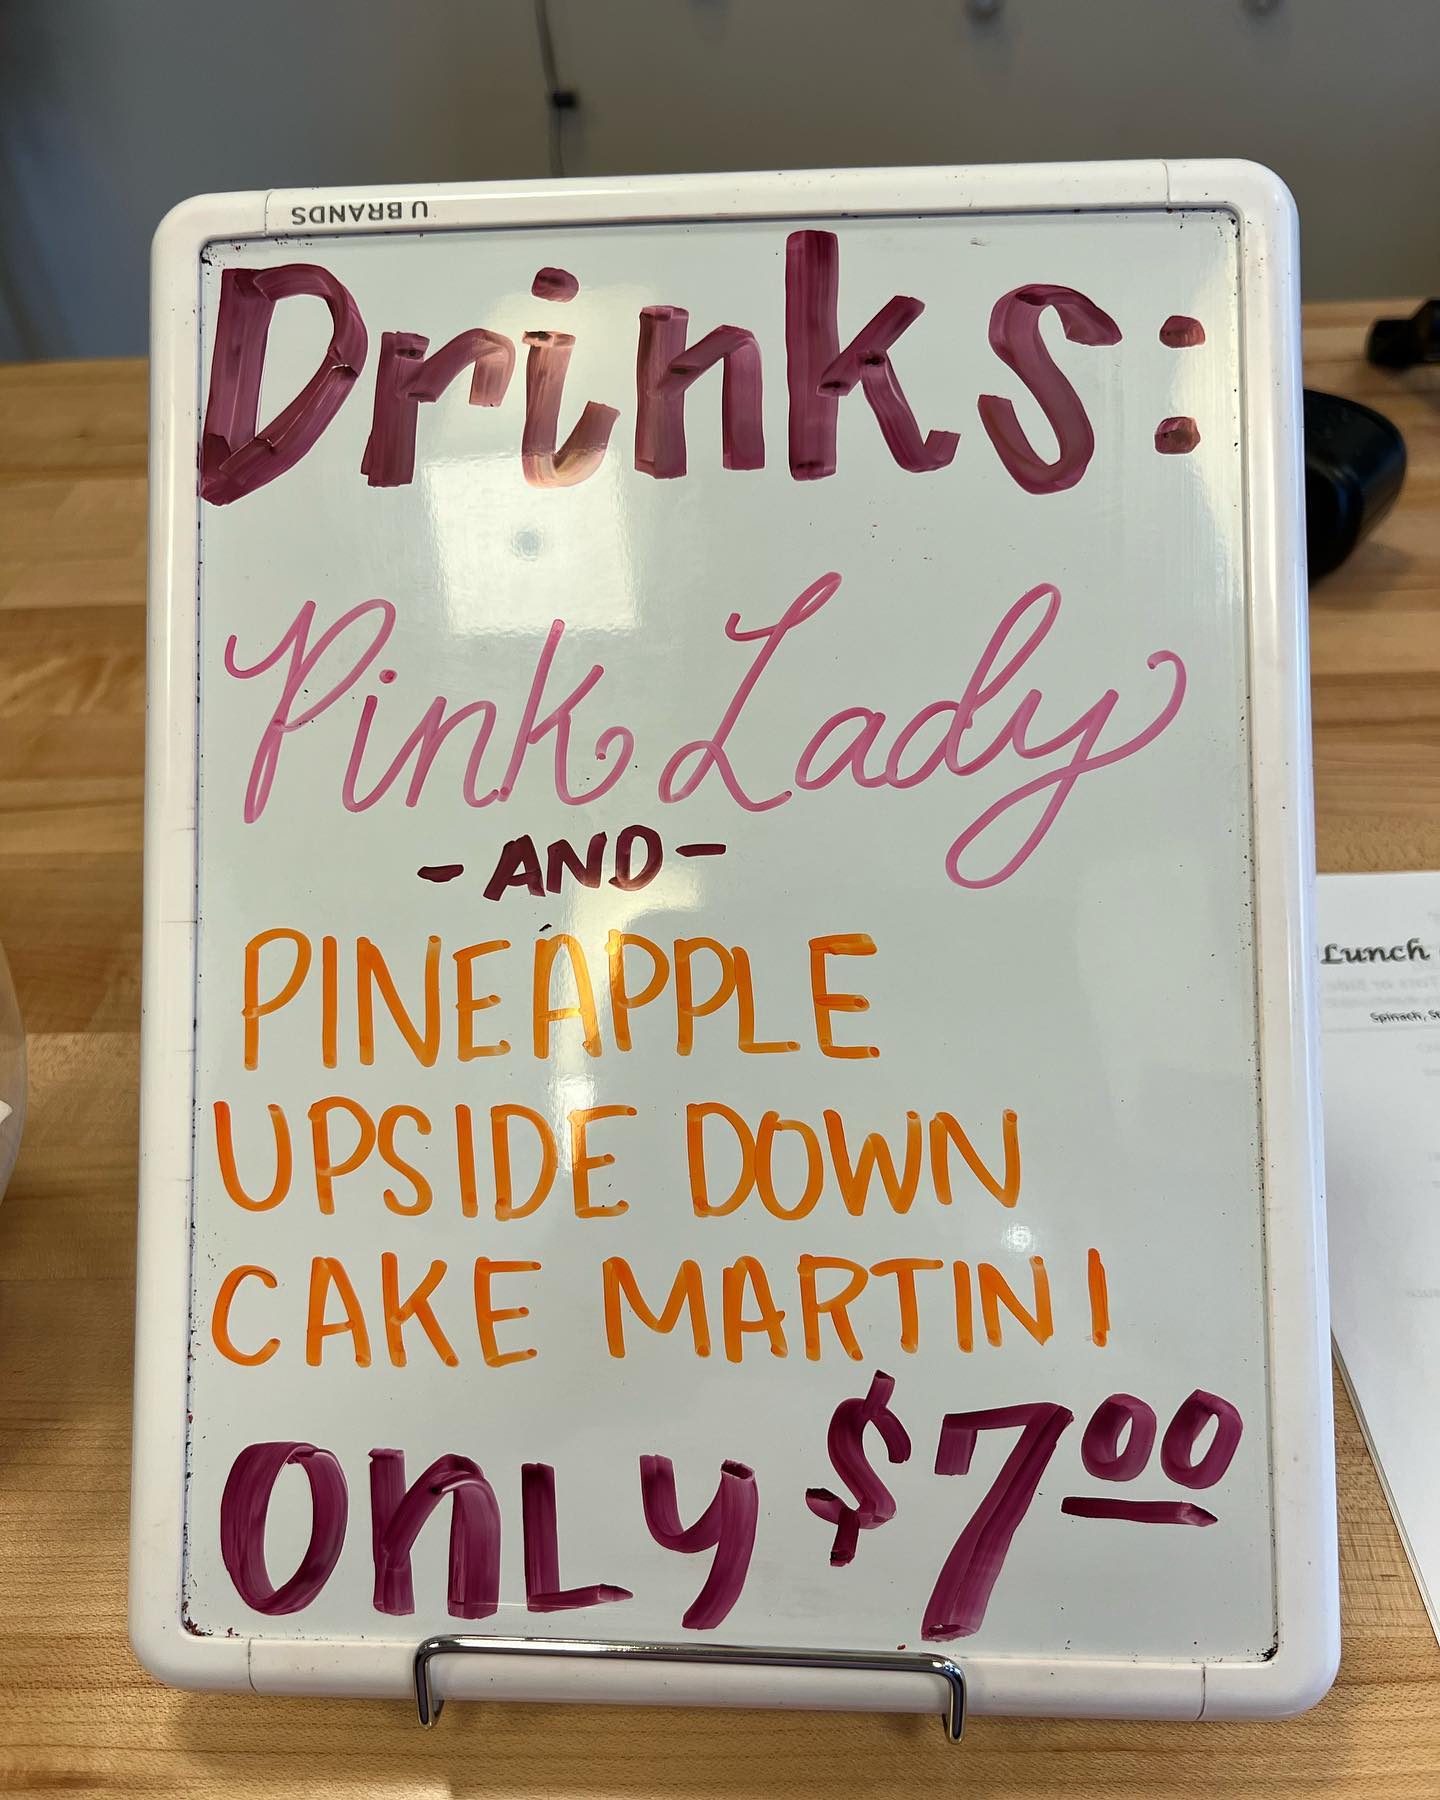 U BRANDS
Drinks:
Pink Lady
- AND -
PINEAPPLE
UPSIDE DOWN
CAKE MARTINI
ONLY $7.00
Lunch
Spinach,